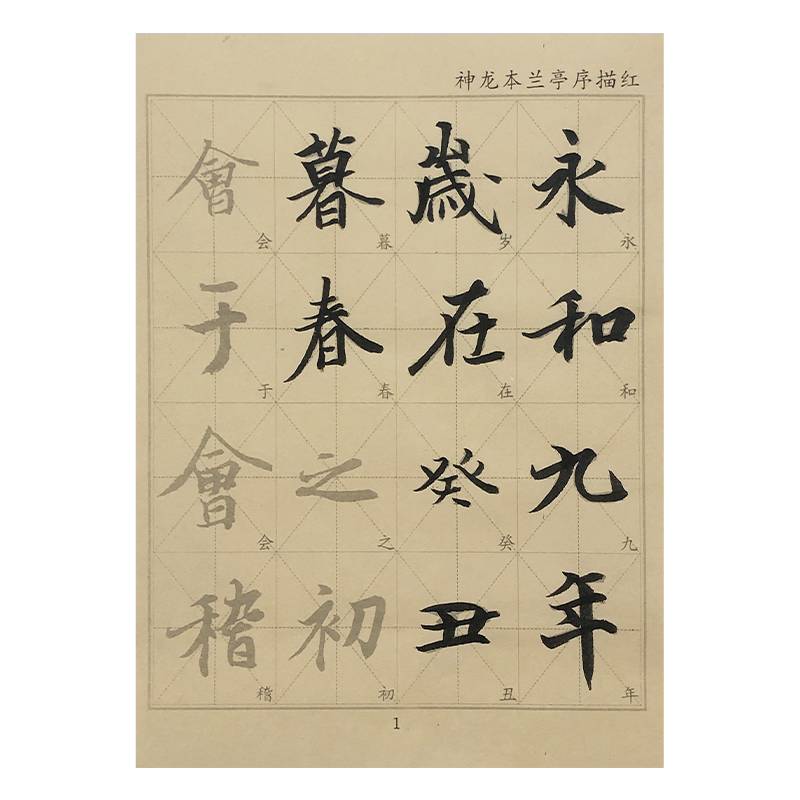 神龙本兰亭序描红
永和九年
永和九年
歲在癸丑
岁在癸丑
暮春之初
暮春之初
會于會稽
会于会稽
1